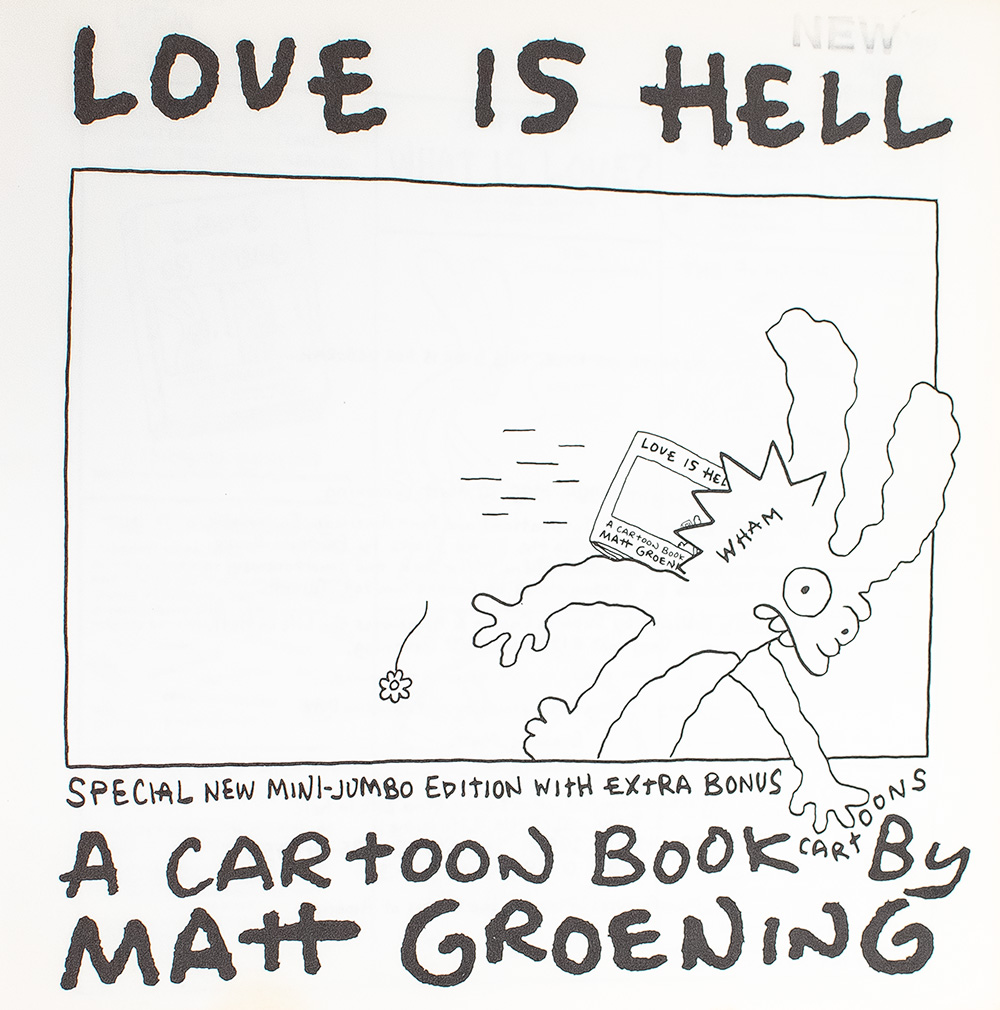 NEW
LOVE IS HELL
LOVE IS HEL
A CARTOON BOOK
MATT GROEN
WHAM
SPECIAL NEW MINI-JUMBO EDITION WITH EXTRA BONUS
CARTOONS
A CARTOON BOOK By
MATT GROENING